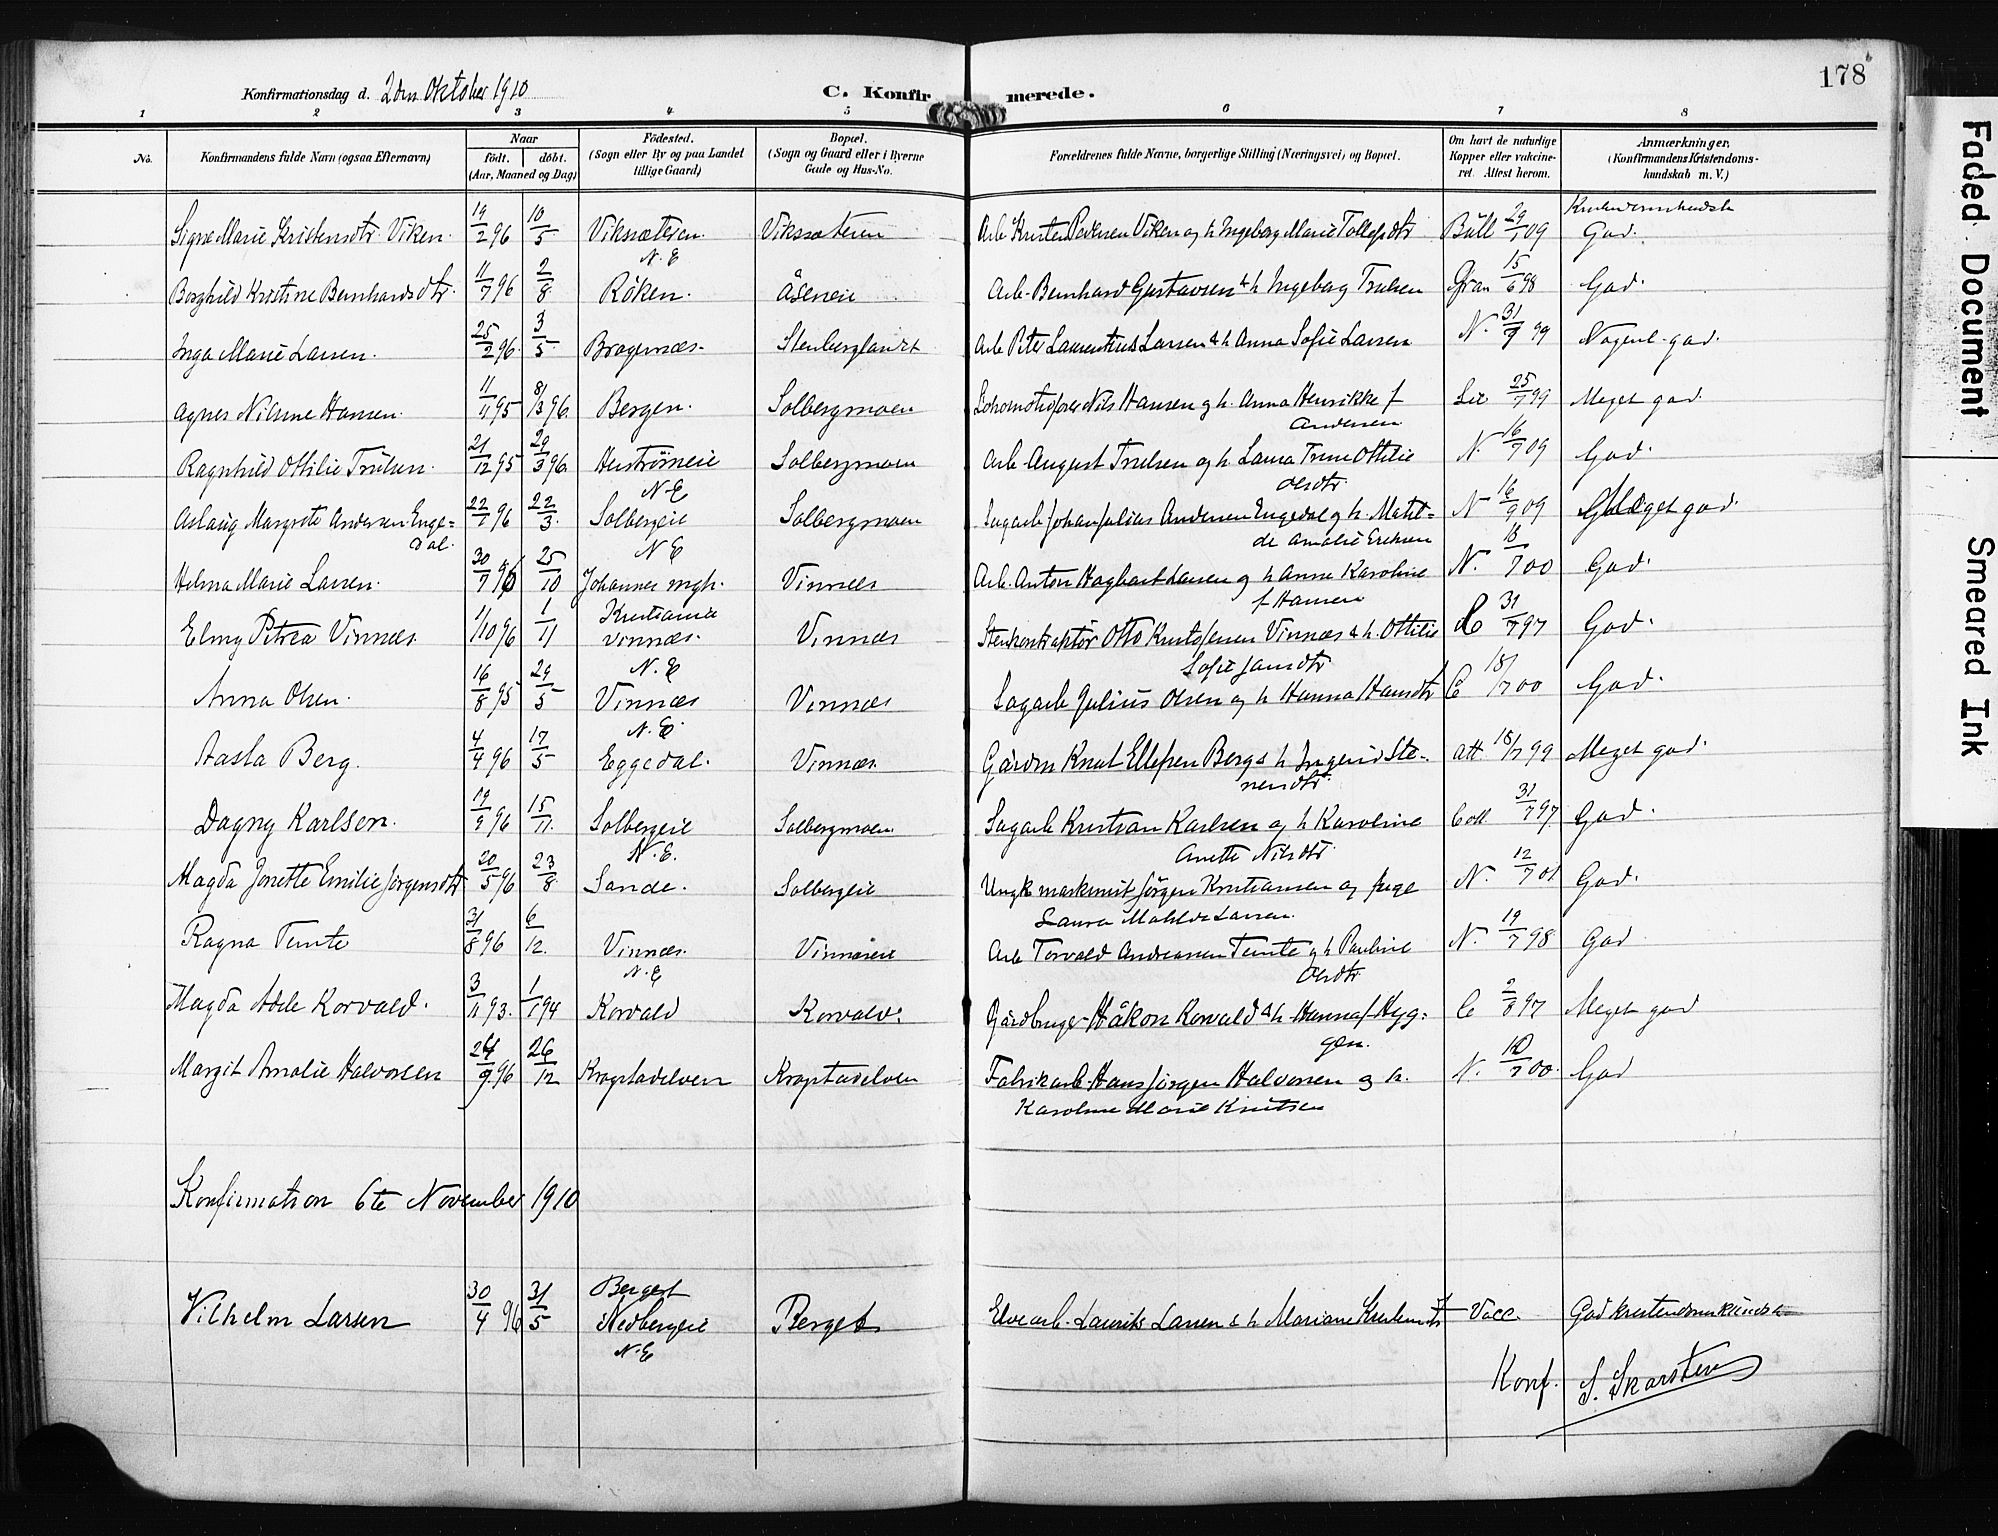 178
Konfirmationsdag d. 2den Oktober 1910
C. Konfirmerede.
1 2 3 4 5 6 7 8
No. Konfirmandens fulde Navn (ogsaa Efternavn) Naar født. døbt. (Aar, Maaned og Dag) Fødested. (Sogn eller By og paa Landet tillige Gaard) Bopæl. (Sogn og Gaard eller i Byerne Gade og Hus-No. Forældrenes fulde Navne, borgerlige Stilling (Næringsvei) og Bopæl. Om havt de naturlige Kopper eller vakcineret. Attest herom. Anmærkninger, (Konfirmandens Kristendomskundskab m. V.)
Kristendomskundsk
Signe Marie Kristensdtr Viken 19/2 96 10/5 Viksæteren N.E Viksæteren Arb Kristen Pedersen Viken og h Ingeborg Marie Tollefsdtr Bull 29/1 09 God.
Borghild Kristine Bernhardsdtr. 11/7 96 2/8 Röken. Åseneie Arb. Bernhard Gustavsen & h Ingeborg Trulsen Gran 15/6 98 God.
Inga Marie Larsen. 25/2 96. 3/5. Bragernæs. Stenberglandt Arb Peter Laurentius Larsen & h Anna Sofie Larsen N. 31/9 99 Nogenl. god.
Agnes Nilsine Hansen. 11/11 95 8/3 96. Bergen. Solbergmoen Lokomotivfører Nils Hansen og h. Anna Henrikke f Andersen Lie 25/7 99 Meget god.
Ragnhild Ottilie Trulsen. 21/12 95 29/3 96. Herströmeie N E Solbergmoen Arb. August Trulsen og h. Laura Trine Ottilie Olsdtr. N. 16/7 09 God.
Aslaug Margrete Andersen Engedal. 22/1 96 22/3. Solbergeie N E Solbergmoen Sagarb Johan Julius Andersen Engedal og h. Matilde Amalie Eriksen N 16/9 09 Meget god
Helma Marie Larsen. 30/7 96 25/10 Johannes mgh. Kristiania Vinnæs Arb. Anton Hagbart Larsen og h Anne Karoline f Hansen N. 18/7 00 God.
Elmy Petrea Vinnæs 1/10 96 1/11 Vinnæs. N. E Vinnæs Stenkontraktör Otto Kristofersen Vinnæs & h. Ottilie Sofie Jansdtr C 31/7 97 God.
Anna Olsen. 16/8 95 29/5 Vinnæs N. E. Vinnæs Sagarb Julius Olsen og h Hanna Hansdtr C 18/7 00 God.
Aasta Berg. 4/4 96 17/5 Eggedal. Vinnæs. Gårdm Knut Ellefsen Berg & h Ingerid Stenersdtr. att 18/7 99 Meget god.
Dagny Karlsen. 19/9 96 15/11. Solbergeie N. E. Solbergmoen. Sagarb Kristian Karlsen og h Karoline Anette Nilsdtr. Coll 31/7 97. God.
Magda Jonette Emilie Jörgensdtr 20/5 96 23/8. Sande. Solbergeie Ungk maskinist Jörgen Kristiansen og pige Laura Matilde Larsen. N. 12/7 01 God.
Ragna Temte 31/8 96 6/12. Vinnæs. N. E Vinnæseie Arb Torvald Andreasen Temte og h Pauline Olsdtr. N. 19/7 98 God
Magda Adele Korvald. 3/11 93. 1/1 94 Korvald Korvald. Gårdbruger Håkon Korvald & h Hanna f Hyggen. C 2/8 97 Meget god
Margit Amalie Halvorsen 24/9 96 26/12 Krogstadelven Krogstadelven Fabrikarb. Hans Jörgen Halvorsen og h. Karoline Marie Knutsen N. 10/7 00. God
Konfirmation 6te November 1910
Vilhelm Larsen 30/4 96 31/5 Berget Nedbergeie N. E Berget Elvearb. Laurits Larsen & h Mariane Vacc. God kristendomskundsk
Konf. S. Skarsten
Faded Document
Smeared Ink